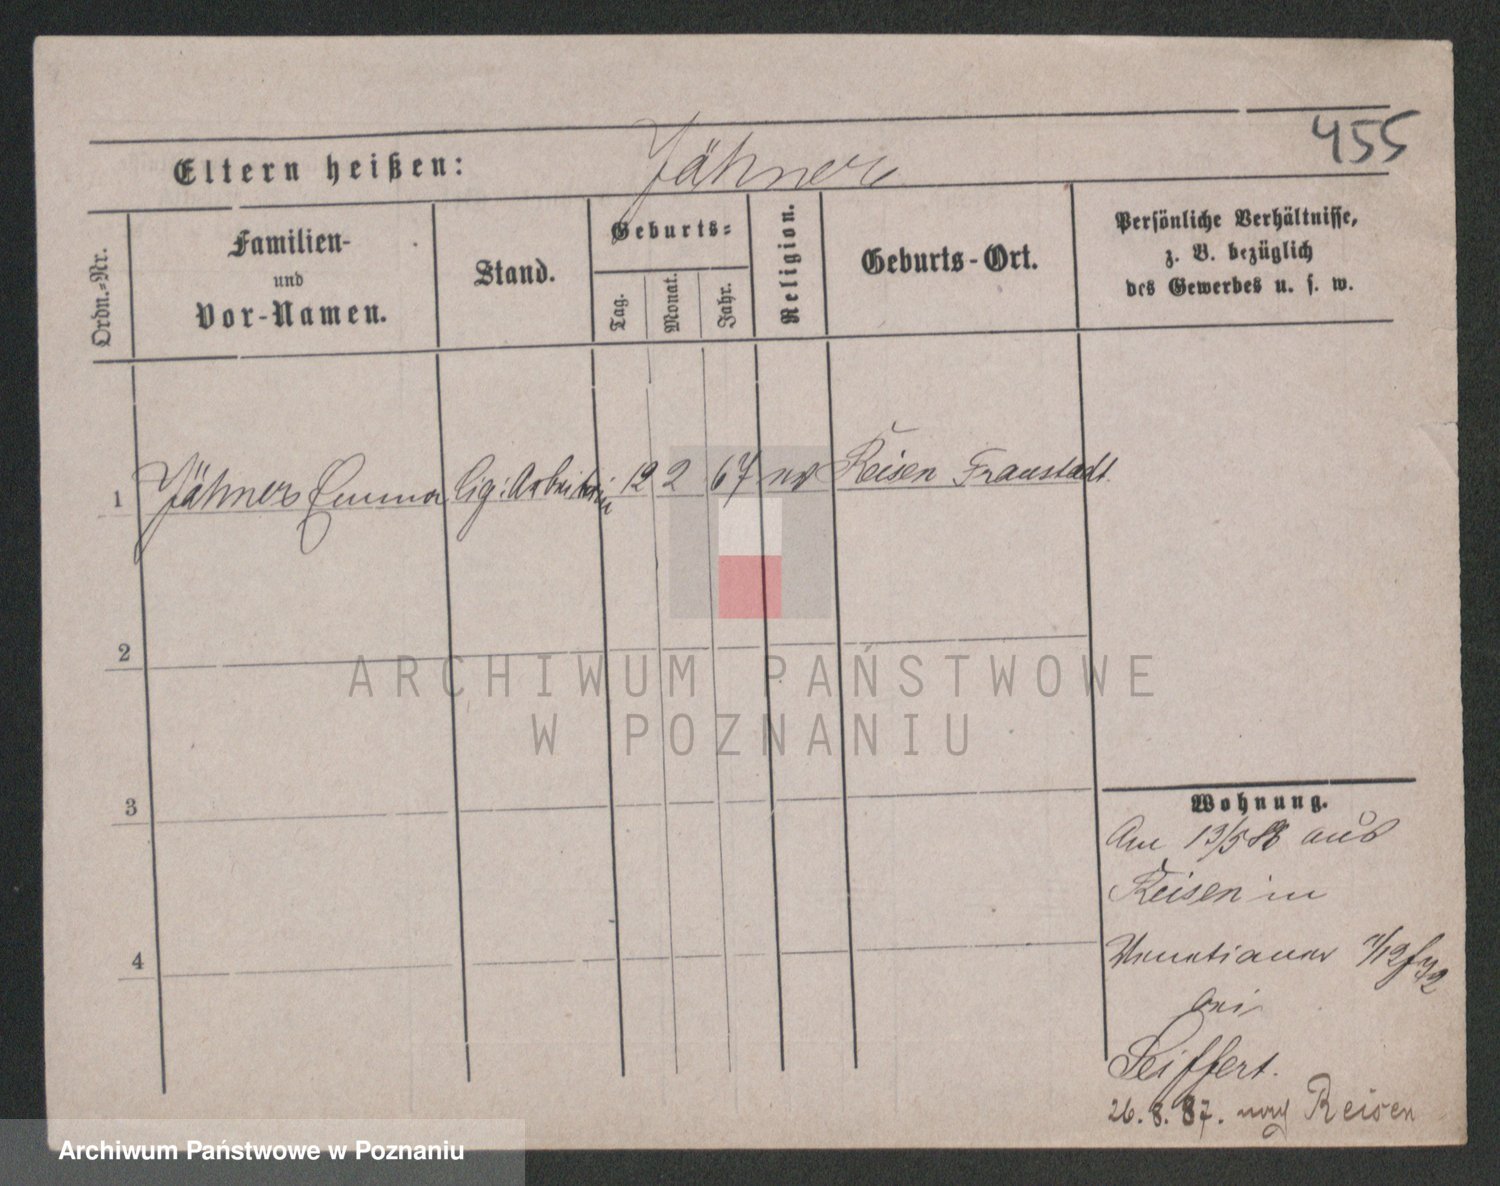 455
Eltern heißen: Jähner
Ordn.-Nr.
Familien-
und
Vor-Namen.
Stand.
Geburts-
Tag.
Monat.
Jahr.
Religion.
Geburts-Ort.
Persönliche Verhältnisse,
z. B. bezüglich
des Gewerbes u. s. w.
1 Jähner Emma Cig: Arbeiterin 12 2 67 ev Reisen Fraustadt
2
ARCHIWUM PAŃSTWOWE
W POZNANIU
3
4
Wohnung.
Am 13/5 86 aus
Reisen in
Venetianer 11/12
bei
Seiffert.
26.8.87. nach Reisen
Archiwum Państwowe w Poznaniu